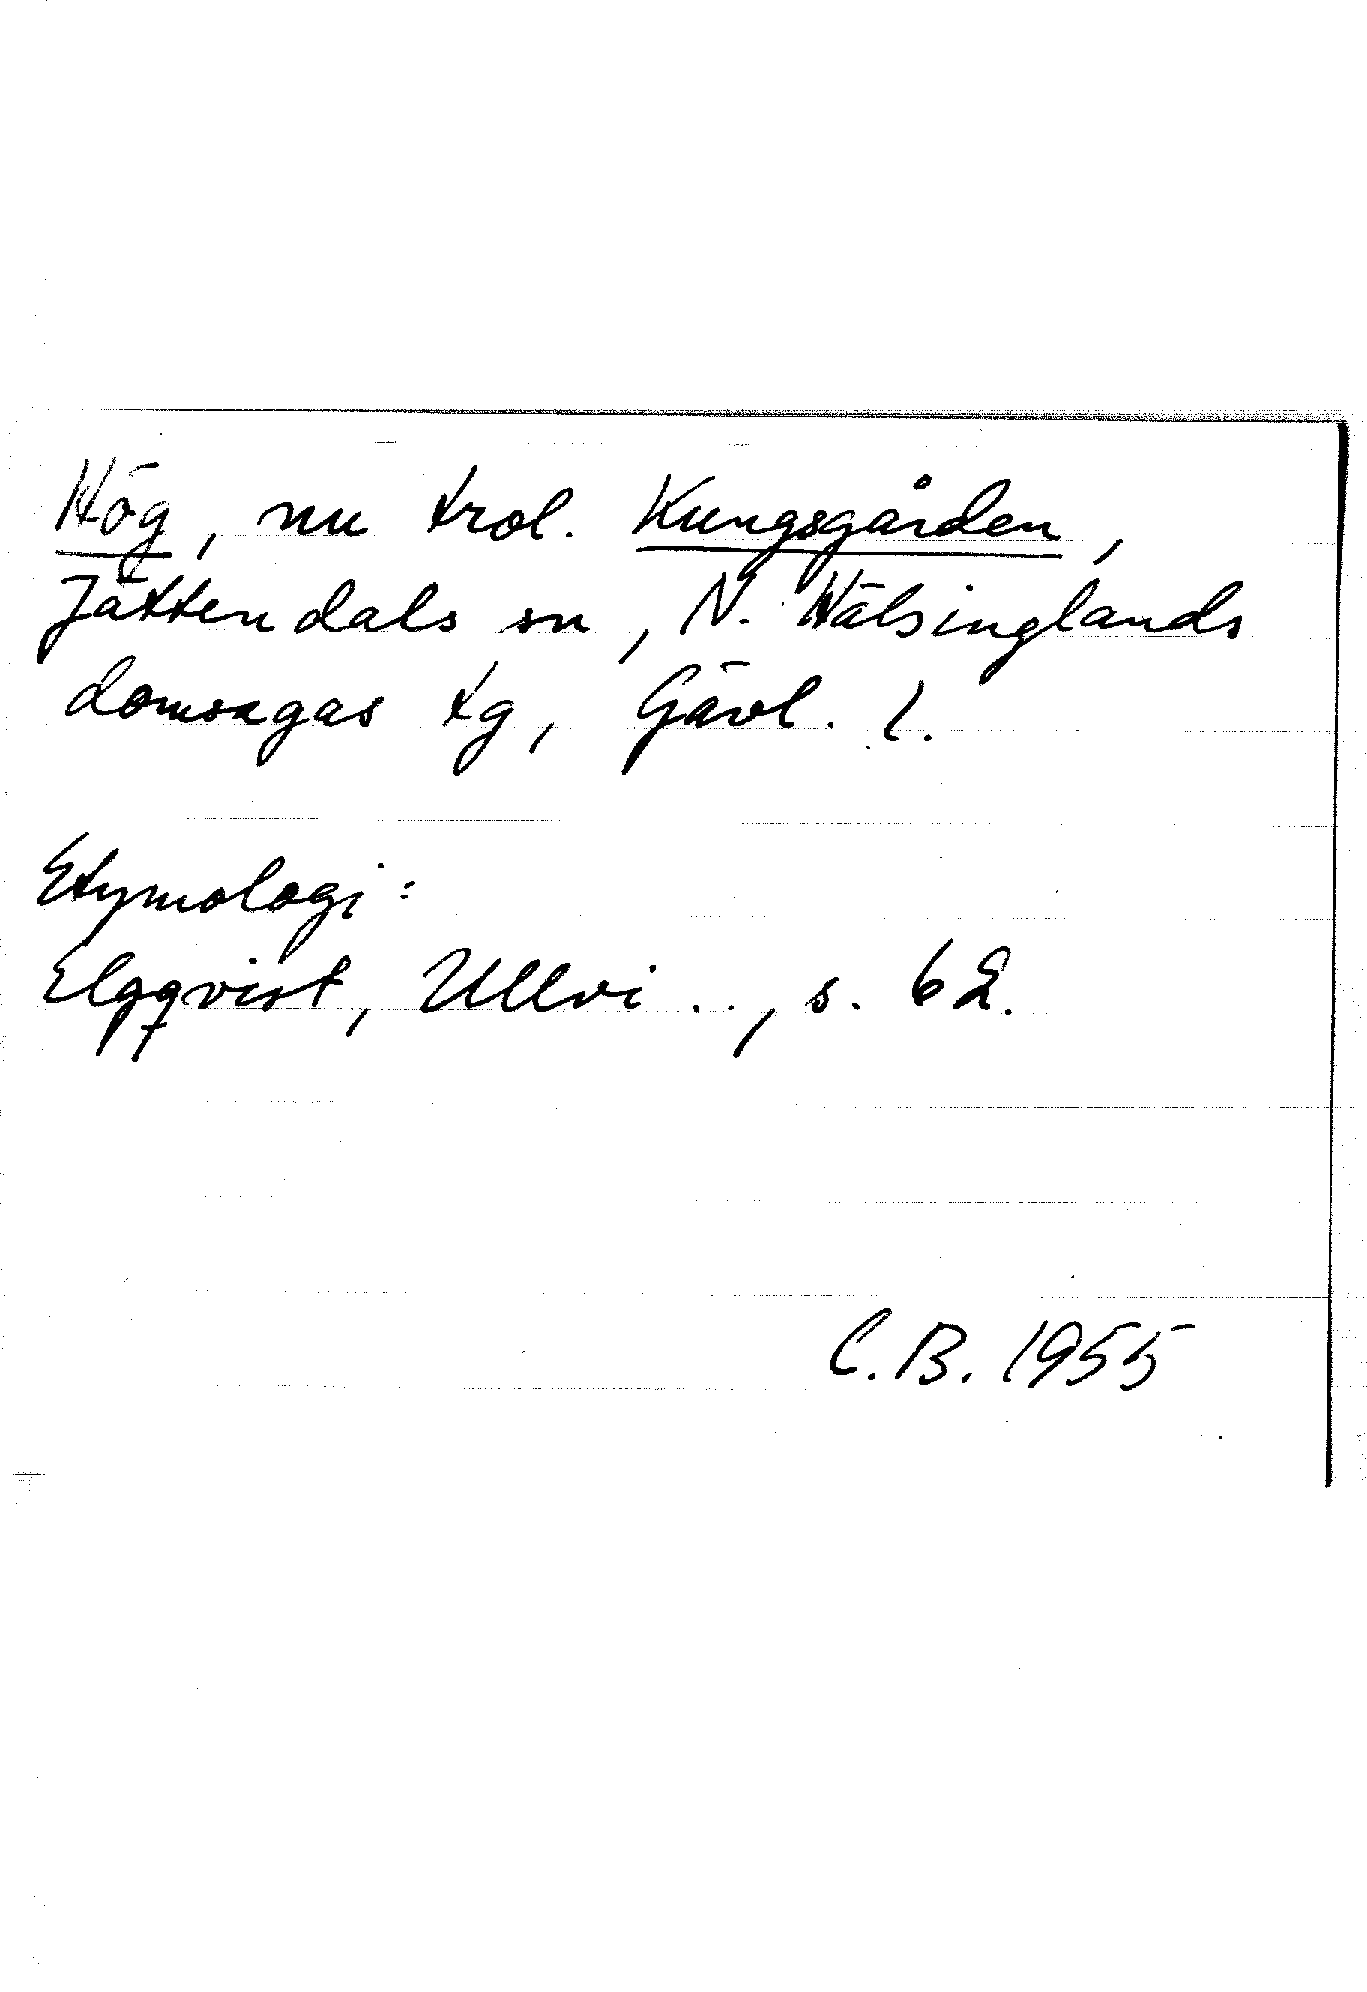 Hög, nu trol. Kungsgården,
Jättendals sn, N. Hälsinglands
domsagas tg, Gävl. l.
Etymologi:
Elgqvist, Ullvi .., s. 62.
C.B. 1955